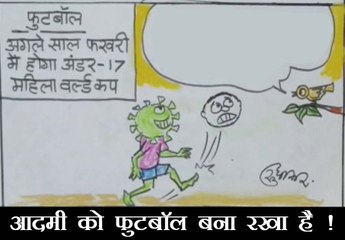 फुटबॉल
अगले साल फरवरी
में होगा अंडर-17
महिला वर्ल्ड कप
सुधाकर
आदमी को फुटबॉल बना रखा है !